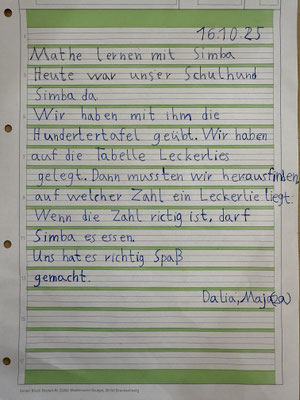 16.10.25
Mathe lernen mit Simba
Heute war unser Schulhund
Simba da
Wir haben mit ihm die
Hundertertafel geübt. Wir haben
auf die Tabelle Leckerlies
gelegt. Dann mussten wir herausfinden,
auf welcher Zahl ein Leckerlie liegt.
Wenn die Zahl rictig ist, darf
Simba es essen.
Uns hat es richtig Spaß
gemacht.
Dalia, Maja